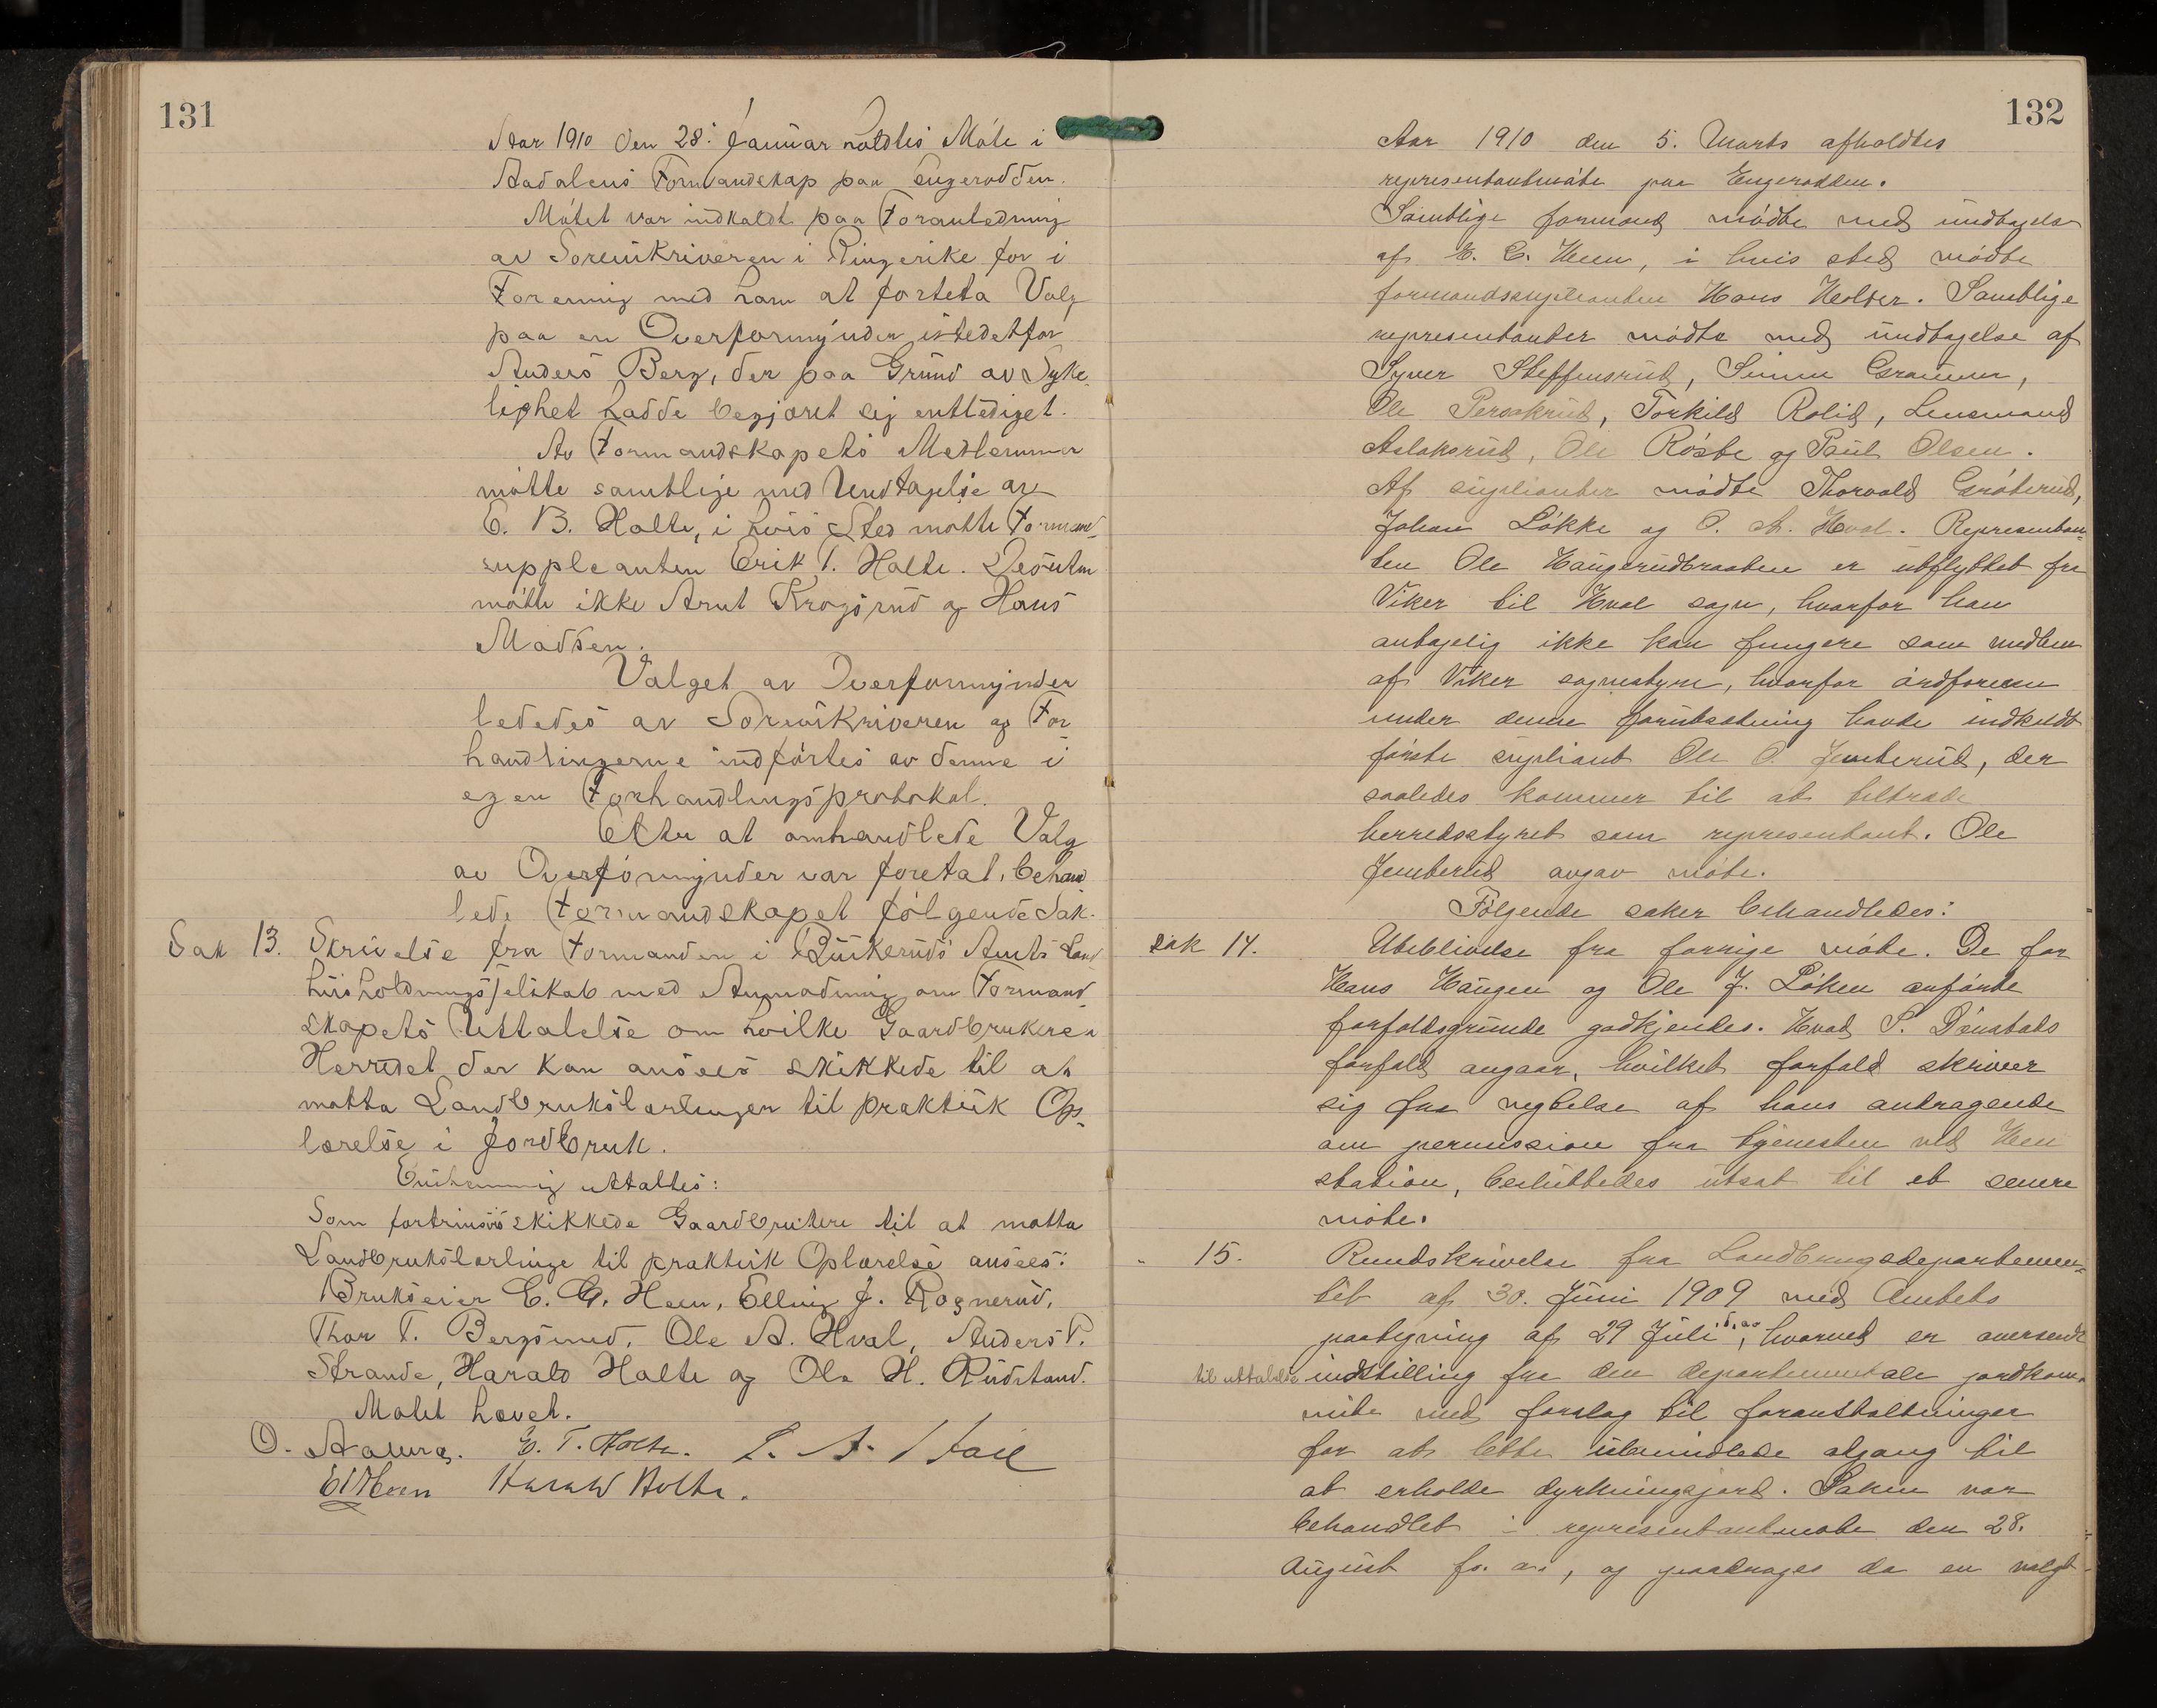 131
Aar 1910 den 28. Januar holdtes Møte i
Aadalens Formandskap paa Engerodden.
Møtet var indkaldt paa Foranledning
av Sorenskriveren i Ringerike for i
Forening med ham at foreta Valg
paa en Overformynder istedetfor
Anders Berg, der paa Grund av Syke
lighet hadde begjæret sig entlediget.
Av Formandskapets Medlemmer
møtte samtlige med Undtagelse av
E. B. Holte, i hvis Sted møtte Formand-
suppleanten Erik T. Holte. Desuten
møtte ikke Arnt Krogsrud og Hans
Madsen.
Valget av Overformynder
lededes av Sorenskriveren og For
handlingerne indførtes av denne i
egen Forhandlingsprotokol.
Etter at omhandlede Valg
av Overformynder var foretat, behand
lede Formandskapet følgende Sak.
Sak 13. Skrivelse fra Formanden i Buskeruds Amts Land
husholdningsselskab med Anmodning om Formand
skapets Uttalelse om hvilke Gaardbrukere i
Herredet der kan ansees skikkede til at
motta Landbrukslærlinger til praktisk Op-
lærelse i Jordbruk.
Enstemmig uttaltes:
Som fortrinsvis skikkede Gaardbrukere til at motta
Landbrukslærlinge til praktisk Oplærelse ansees:
Brukseier E. G. Heen, Elling J. Rognerud,
Thor T. Bergsund, Ole A. Hval, Anders P.
Strande, Harald Holte og Ole H. Rudstand.
Møtet hævet.
O. E. T. Holte. A.
Heen Harald Holte.
132
Aar 1910 den 5. Marts afholdtes
representantmøte paa Engerodden.
Samtlige formænd mødte med undtagelse
af E. G. Heen, i hvis sted mødte
formandssuplianten Hans Hollser. Samtlige
representanter mødte med undtagelse af
Syver Steffensrud, Simen Grammen,
Ole Persskrud, Torkild Rolid, Lensmand
Aslaksrud, Ole Røste og Paul Olsen.
Af suplianter mødte Thorvald Grøterud,
Johan Løkke og O. A. Hval. Representan-
ten Ole Haugerudbraaten er utflyttet fra
Viker til Hval sogn, hvorfor han
antagelig ikke kan fungere som medlem
af Viker sognestyre, hvorfor ordføreren
under denne forutsætning havde indkaldt
første supliant Ole O. Jenterud, der
saaledes kommer til at tiltræde
herredsstyret som representant. Ole
Jenterud avgav møte.
Følgende saker behandledes:
sak 14. Uteblivelse fra forrige møte. De for
Hans Haugen og Ole J. Løken anførte
forfaldsgrunde godkjendes. Hvad P. Dønstads
forfald angaar, hvilket forfald skriver
sig fra negtelse af hans andragende
om permission fra tjenesten ved Hen
station, besluttedes utsat til et senere
møte.
" 15. Rundskrivelse fra Landbrugsdepartemen-
tet af 30. Juni 1909 med Amtets
paategning af 29 Juli s.a., hvorved er oversendt
til uttalelse indstilling fra den departementale jordkom-
mite med forslag til foranstaltninger
for at lette ubemidlede adgang til
at erholde dyrkningsjord. Saken var
behandlet i representantmøte den 28.
August f. a., og paadroges da en valgt